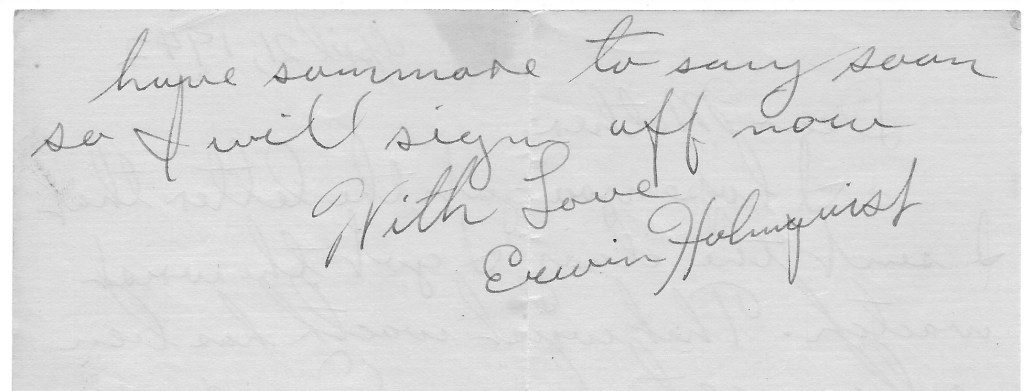 hope sommore to sany soon
so I will sign off now
With Love
Erwin Holmquist